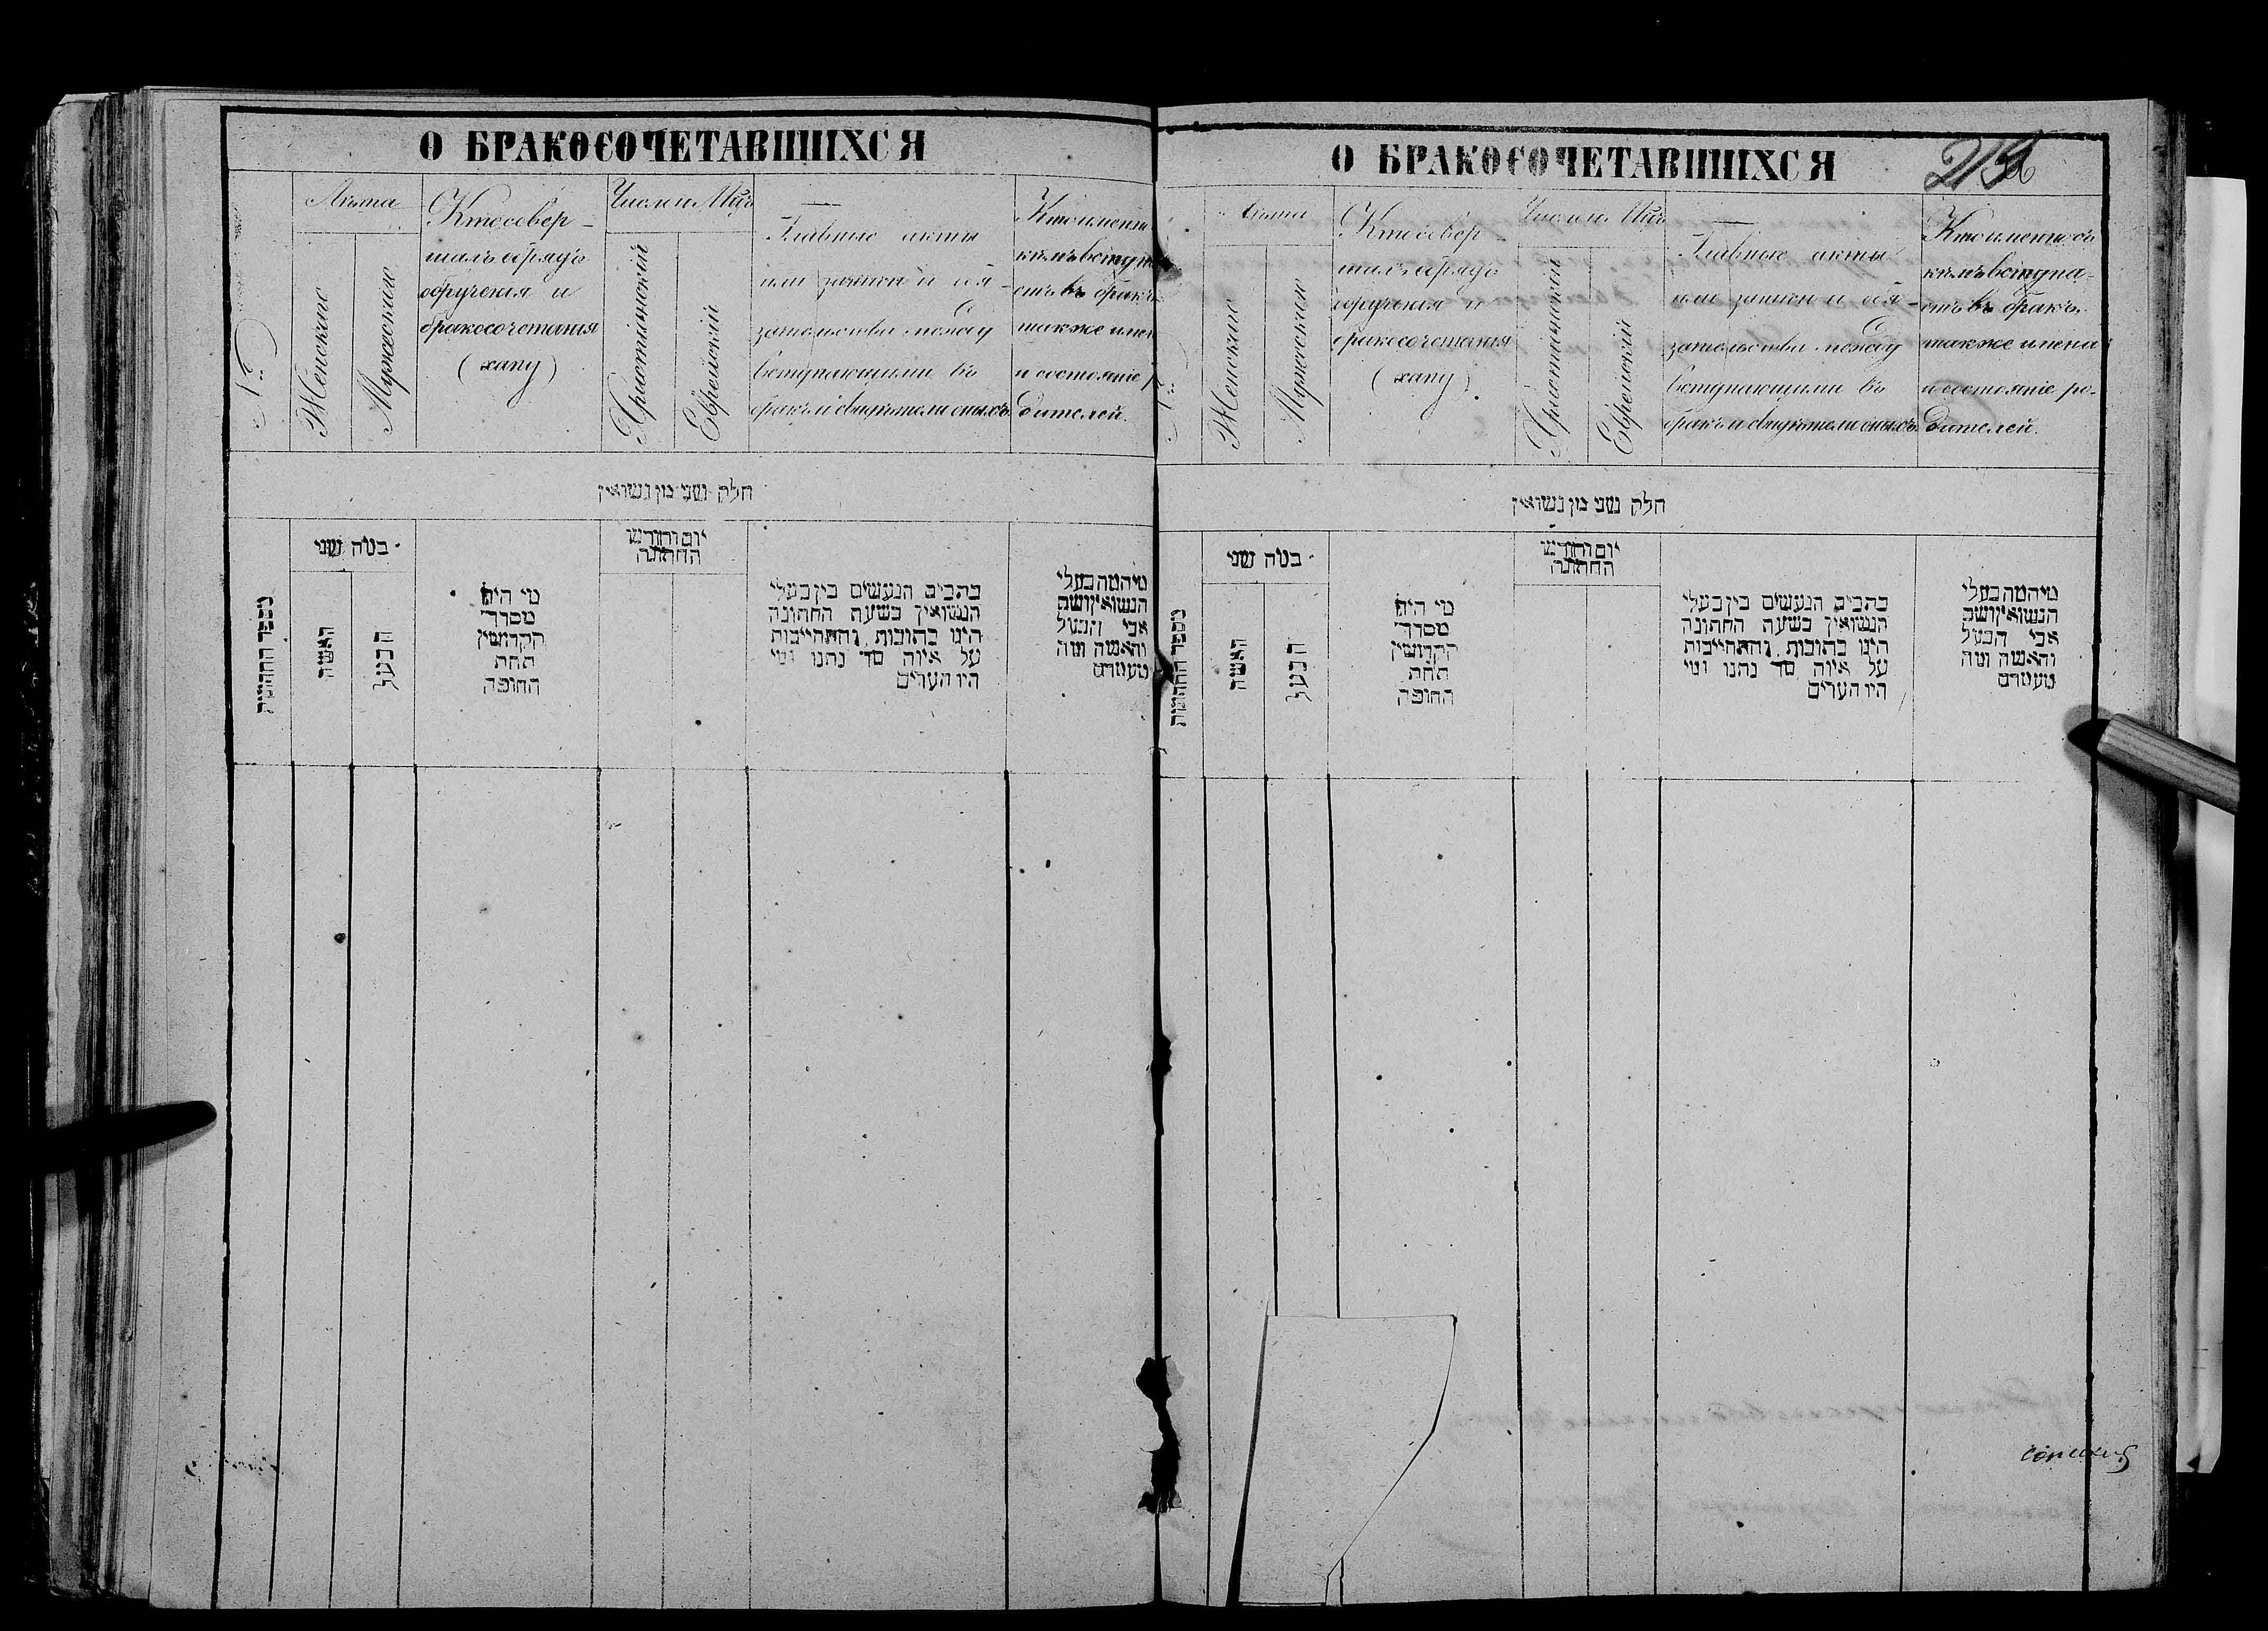 О БРАКОСОЧЕТАВШИХСЯ
№
Лѣта
Женскаго
Мужескаго
Кто совер-
шалъ обрядъ
обрученія и
бракосочетанія
(хапу)
Число и Мцъ
Христіянскій
Еврейскій
Главные акты
или записи и обя-
зательства между
вступающими въ
бракъ и свидѣтели оныхъ
Кто именно
кѣмъ вступа
етъ въ бракъ
также имен
и состояніе р
дителей.
חלק שני מן נשואין
מספר החתונות
כמה שני
האשה
הבעל
מי היה
מסדר
הקדושין
תחת
החופה
יום וחודש
החתונה
כתבים הנעשים בין בעלי
הנשואין בשעת החתונה
היינו כתובות והתחייבות
על איזה סך נתנו ומי
היו העדים
מי המה בעלי
הנשואין ושם
אבי הבעל
והאשה ומה
מעמדם
О БРАКОСОЧЕТАВШИХСЯ
Лѣта
Женскаго
Мужескаго
Кто совер
шалъ обрядъ
обрученія и
бракосочетанія
(хапу)
Число и Мцъ
Христіянскій
Еврейскій
Главные акты
или записи и обя-
зательства между
вступающими въ
бракъ и свидѣтели оныхъ
Кто именно съ
кѣмъ вступа-
етъ въ бракъ,
также имена
и состояніе ро-
дителей.
חלק שני מן נשואין
מספר החתונות
כמה שני
האשה
הבעל
מי היה
מסדר
הקדושין
תחת
החופה
יום וחודש
החתונה
כתבים הנעשים בין בעלי
הנשואין בשעת החתונה
היינו כתובות והתחייבות
על איזה סך נתנו ומי
היו העדים
מי המה בעלי
הנשואין ושם
אבי הבעל
והאשה ומה
מעמדם